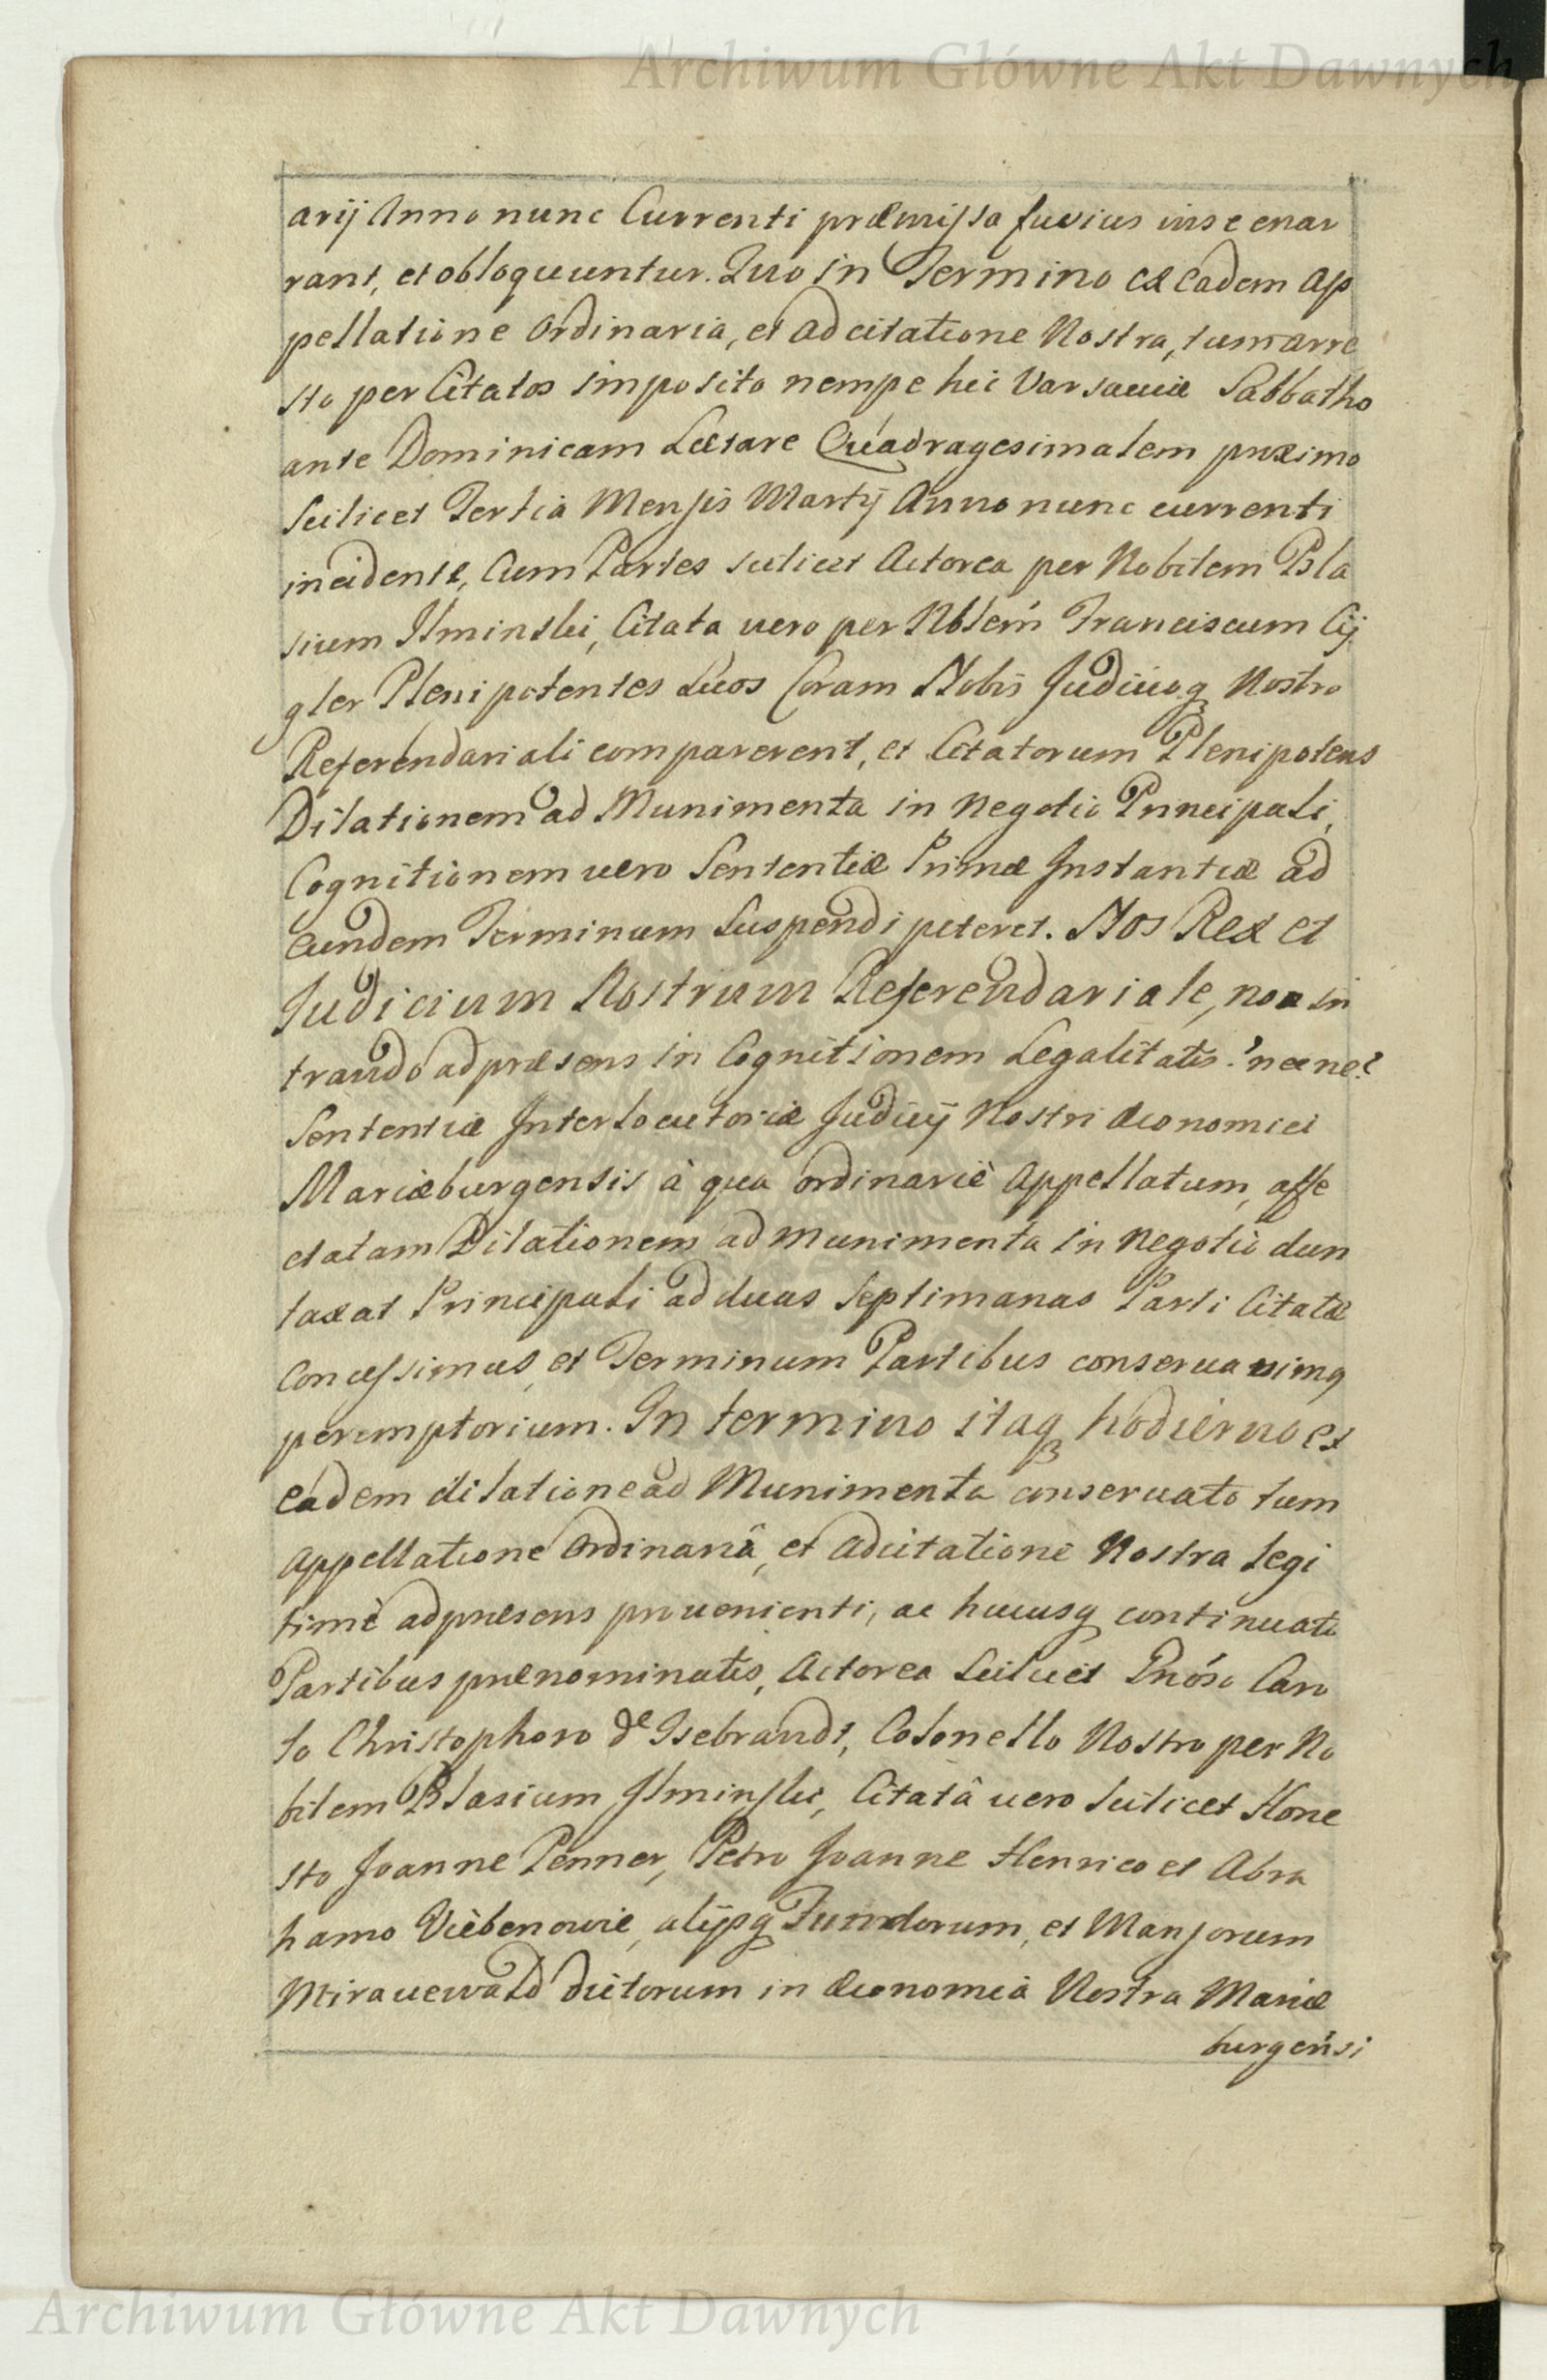 Archiwum Główne Akt Dawnych
arij Anno nunc Currenti præmissa fusius in se enar
rant, et obloquuntur. Quo in Termino ex eadem Ap
pellatione Ordinaria, et adcitatione Nostra, tum arre
sto per Citatos imposito nempe hic Varsaviæ Sabbatho
ante Dominicam Lætare Quadragesimalem proximo
scilicet Tertia Mensis Martij Anno nunc currenti
incidente, Cum Partes scilicet Actorea per Nobilem Bla
sium Ilminski, Citata vero per Nblem Franciscum Cij
gler Plenipotentes Suos Coram Nobis Judicioq Nostro
Referendariali comparerent, et Citatorum Plenipotens
Dilationem ad Munimenta in Negotio Principali,
Cognitionem vero Sententiæ Primæ Instantiæ ad
eundem Terminum Suspendi peteret. Nos Rex et
Judicium Nostrum Referendariale, non in
trando ad præsens in Cognitionem Legalitatis? nec ne?
Sententiæ Interlocutoriæ Judicij Nostri Æconomici
Mariæburgensis à qua ordinariè Appellatum, affe
ctatam Dilationem ad munimenta in Negotiò dun
taxat Principali ad duas Septimanas Parti Citatæ
Concessimus, et Terminum Partibus conservavimq
peremptorium. In termino itaq hodierno ex
eadem dilatione ad Munimenta conservato tum
Appellatione Ordinariâ, et Adcitatione Nostra legi
timè ad præsens provenienti, ac hucusq continuato
Partibus prænominatis, Actorea Scilicet Gnóso Caro
lo Christophoro de Isebrandt, Colonello Nostro per No
bilem Blasium Ilminski, Citatâ vero Scilicet Hone
sto Joanne Penner, Petro Joanne Henrico et Abra
hamo Viebenowie, alijsq Fundorum, et Mansorum
Mirauewald dictorum in Æconomiâ Nostra Mariæ
burgensi
Archiwum Główne Akt Dawnych